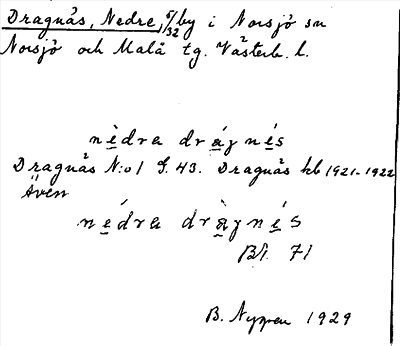 Dragnäs, Nedre, 5/32 by i Norsjö sn
Norsjö och Malå tg. Västerb. l.
nèdra drágnés
Dragnäs N:o1 S. 43. Dragnäs kb 1921-1922
Även
nédra dràgnés
Bl. 71
B. Nygren 1929